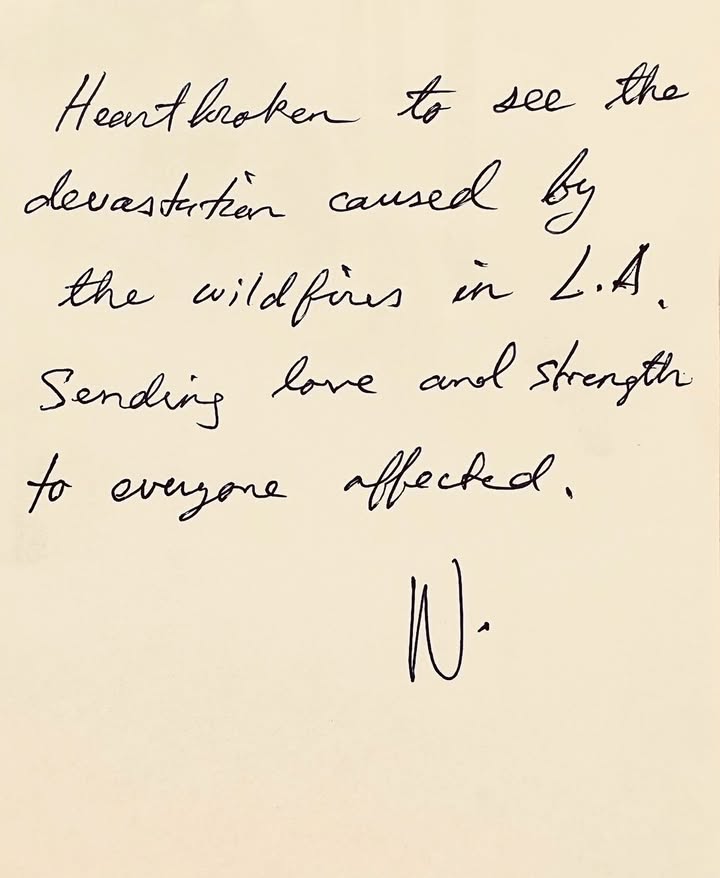 Heartbroken to see the
devastation caused by
the wildfires in L.A.
Sending love and strength
to everyone affected.
N.